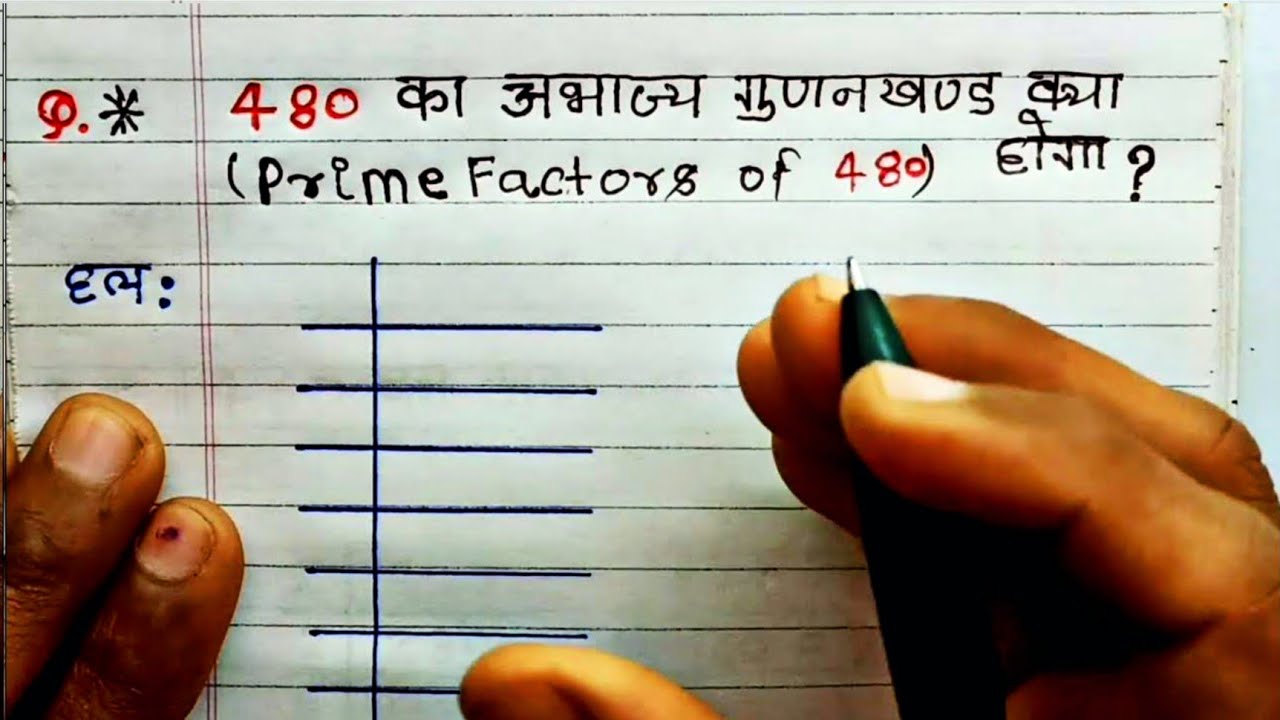 Q.* 480 का अभाज्य गुणनखण्ड क्या
(Prime Factors of 480) होगा ?
हल :